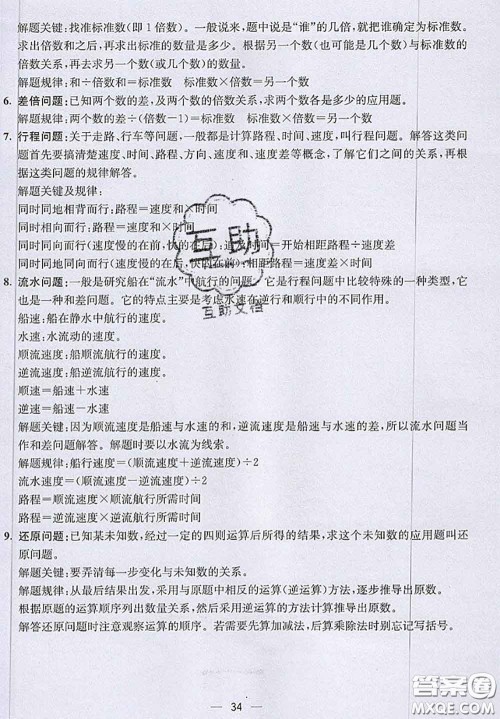 解题关键:找准标准数(即1倍数)。一般说来,题中说是“谁”的几倍,就把谁确定为标准数。
求出倍数和之后,再求出标准的数量是多少。根据另一个数(也可能是几个数)与标准数的
倍数关系,再去求另一个数(或几个数)的数量。
解题规律:和÷倍数和=标准数　标准数×倍数=另一个数
6. 差倍问题:已知两个数的差,及两个数的倍数关系,求两个数各是多少的应用题。
解题规律:两个数的差÷(倍数-1)=标准数　标准数×倍数=另一个数
7. 行程问题:关于走路、行车等问题,一般都是计算路程、时间、速度,叫行程问题。解答这类问
题首先要搞清楚速度、时间、路程、方向、速度和、速度差等概念,了解它们之间的关系,再根
据这类问题的规律解答。
解题关键及规律:
同时同地相背而行:路程=速度和×时间
同时相向而行:路程=速度和×时间
同时同向而行(速度慢的在前,快的在后):追及时间=开始相距路程÷速度差
同时同地同向而行(速度慢的在后,快的在前):相距路程=速度差×时间
8. 流水问题:一般是研究船在“流水”中航行的问题。它是行程问题中比较特殊的一种类型,它
也是一种和差问题。它的特点主要是考虑水速在逆行和顺行中的不同作用。
船速:船在静水中航行的速度。
水速:水流动的速度。
顺流速度:船顺流航行的速度。
逆流速度:船逆流航行的速度。
顺速=船速+水速
逆速=船速-水速
解题关键:因为顺流速度是船速与水速的和,逆流速度是船速与水速的差,所以流水问题当
作和差问题解答。解题时要以水流为线索。
解题规律:船行速度=(顺流速度+逆流速度)÷2
流水速度=(顺流速度-逆流速度)÷2
路程=顺流速度×顺流航行所需时间
路程=逆流速度×逆流航行所需时间
9. 还原问题:已知某未知数,经过一定的四则运算后所得的结果,求这个未知数的应用题叫还
原问题。
解题关键:要弄清每一步变化与未知数的关系。
解题规律:从最后结果出发,采用与原题中相反的运算(逆运算)方法,逐步推导出原数。
根据原题的运算顺序列出数量关系,然后采用逆运算的方法计算推导出原数。
解答还原问题时注意观察运算的顺序。若需要先算加减法,后算乘除法时别忘记写括号。
互助
互助文档
34
答案圈
MXQE.COM